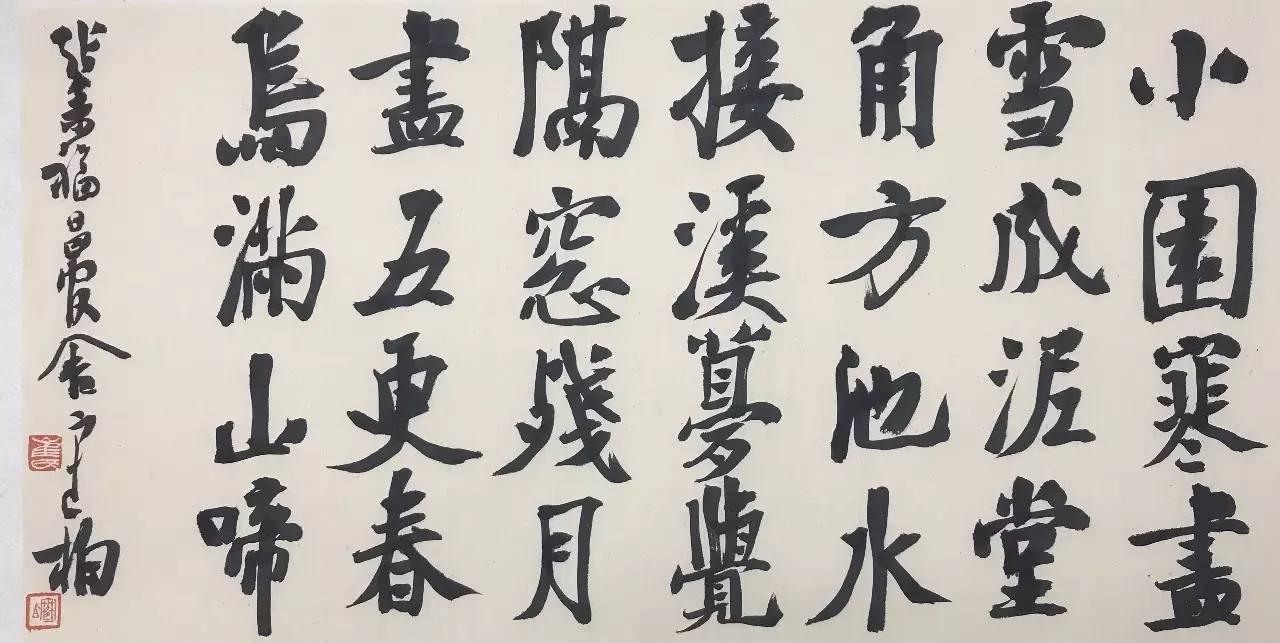 小園寒盡
雪成泥堂
角方池水
接溪夢覺
隔窓殘月
盡五更春
鳥滿山啼
張耒福昌官舍 柏